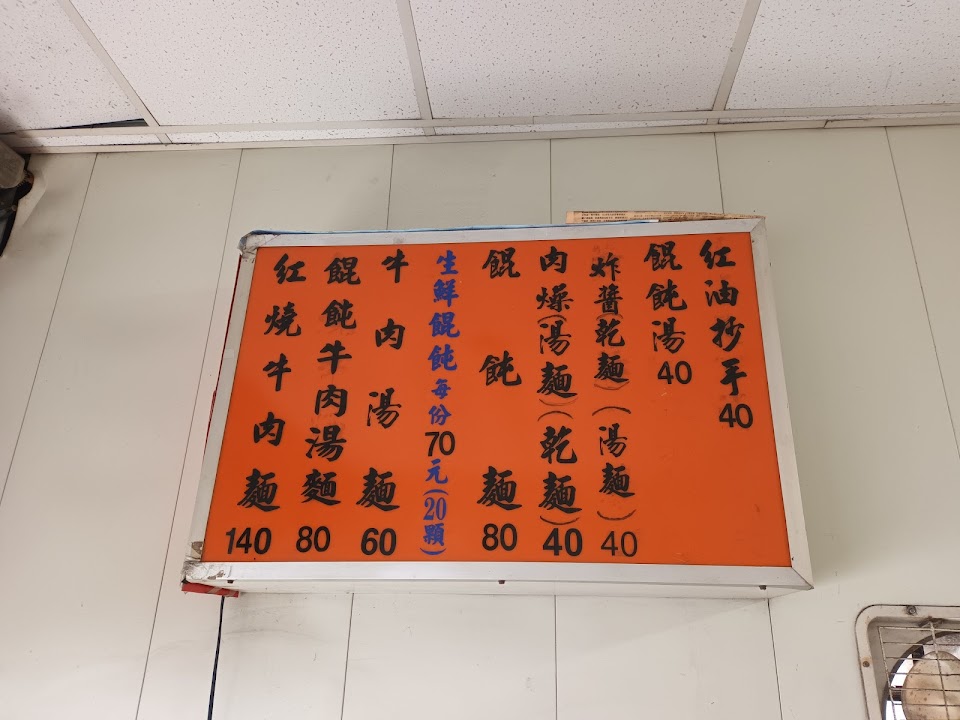 紅油抄手40
餛飩湯40
炸醬(乾麵)(湯麵)40
肉燥(湯麵)(乾麵)40
餛飩麵80
生鮮餛飩每份70元(20顆)
牛肉湯麵60
餛飩牛肉湯麵80
紅燒牛肉麵140